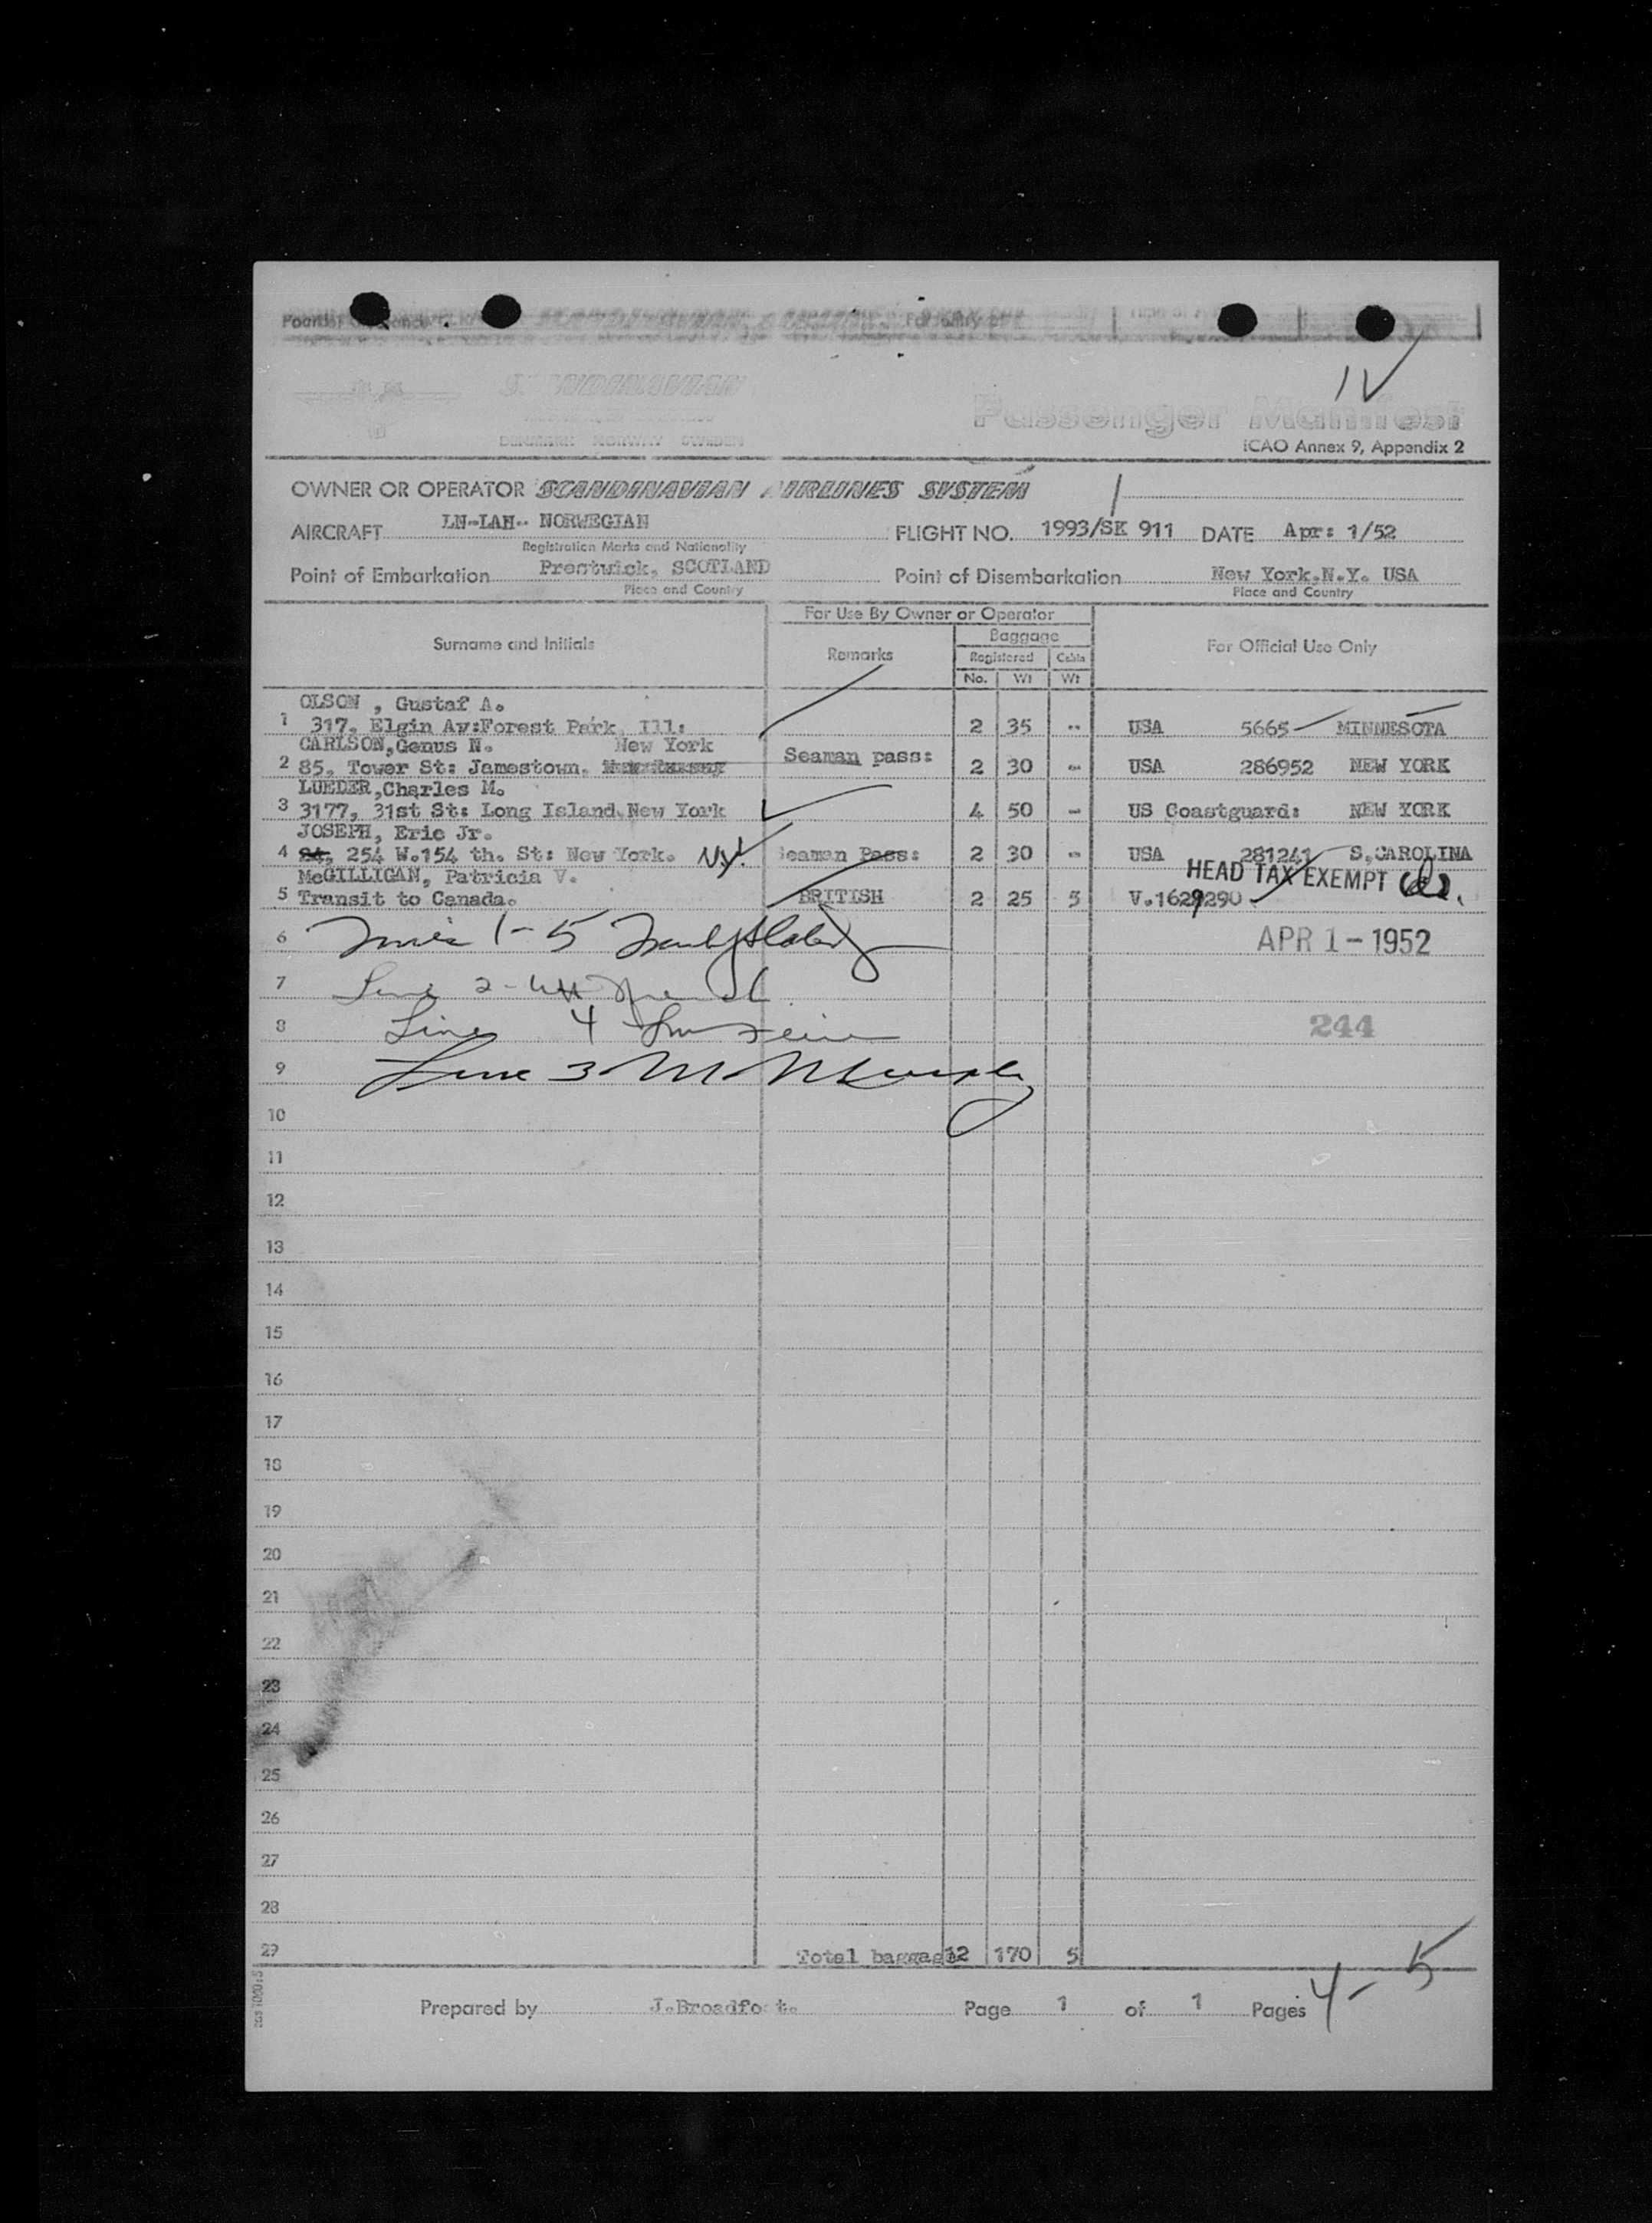 IV
SCANDINAVIAN
DENMARK NORWAY SWEDEN
Passenger Manifest
ICAO Annex 9, Appendix 2
OWNER OR OPERATOR SCANDINAVIAN AIRLINES SYSTEM 1
AIRCRAFT LN-LAH-- NORWEGIAN FLIGHT NO. 1993/SK 911 DATE Apr: 1/52
Registration Marks and Nationality
Point of Embarkation Prestwick, SCOTLAND Point of Disembarkation New York.N.Y. USA
Place and Country Place and Country
For Use By Owner or Operator
Surname and Initials Remarks Baggage For Official Use Only
Registered Cabin
No. Wt Wt
OLSON , Gustaf A.
1 317, Elgin Av:Forest Park, Ill: 2 35 -- USA 5665 MINNESOTA
CARLSON,Genus N. New York
2 85, Tower St: Jamestown. Seaman pass: 2 30 - USA 286952 NEW YORK
LUEDER,Charles M.
3 3177, 31st St: Long Island,New York 4 50 - US Coastguard: NEW YORK
JOSEPH, Eric Jr.
4 84, 254 W.154 th. St: New York. N.Y. Seaman Pass: 2 30 - USA 281241 S,CAROLINA
HEAD TAX EXEMPT
McGILLIGAN, Patricia V.
5 Transit to Canada. BRITISH 2 25 5 V.1629290
6 1-5 APR 1-1952
7 Line 2-
8 Line 4 244
9 Line 3
10
11
12
13
14
15
16
17
18
19
20
21
22
23
24
25
26
27
28
29 Total baggage 12 170 5
Prepared by J.Broadfoot. Page 1 of 1 Pages 4-5